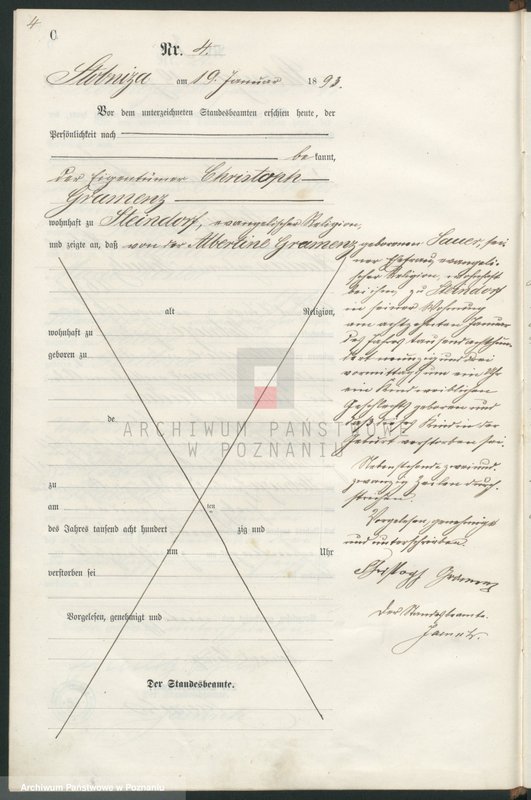 4
C
Nr. 4.
am 19. Januar 1893.
Vor dem unterzeichneten Standesbeamten erschien heute, der
Persönlichkeit nach
be kannt,
der Eigentümer Christoph
Gramenz
wohnhaft zu Steindorf, evangelischer Religion,
und zeigte an, daß von der Albertine Gramenz geborenen Sauer, sei
ner Ehefrau, evangeli
scher Religion, wohnhaft
bei ihm zu Steindorf
in seiner Wohnung
am achtzehnten Januar
des Jahres tausend achthun
dert neunzig und drei
vormittags um ein Uhr
ein Kind weiblichen
Geschlechts geboren und
daß dieses Kind in der
Geburt verstorben sei.
Nebenstehende zwei und
zwanzig Zeilen durch
strichen.
Vorgelesen, genehmigt
und unterschrieben.
Christoph Gramenz
Der Standesbeamte.
alt Religion,
wohnhaft zu
geboren zu
de
ARCHIWUM PAŃSTWOWE
W POZNANIU
zu
am ten
des Jahres tausend acht hundert zig und
um Uhr
verstorben sei
Vorgelesen, genehmigt und
Der Standesbeamte.
Archiwum Państwowe w Poznaniu